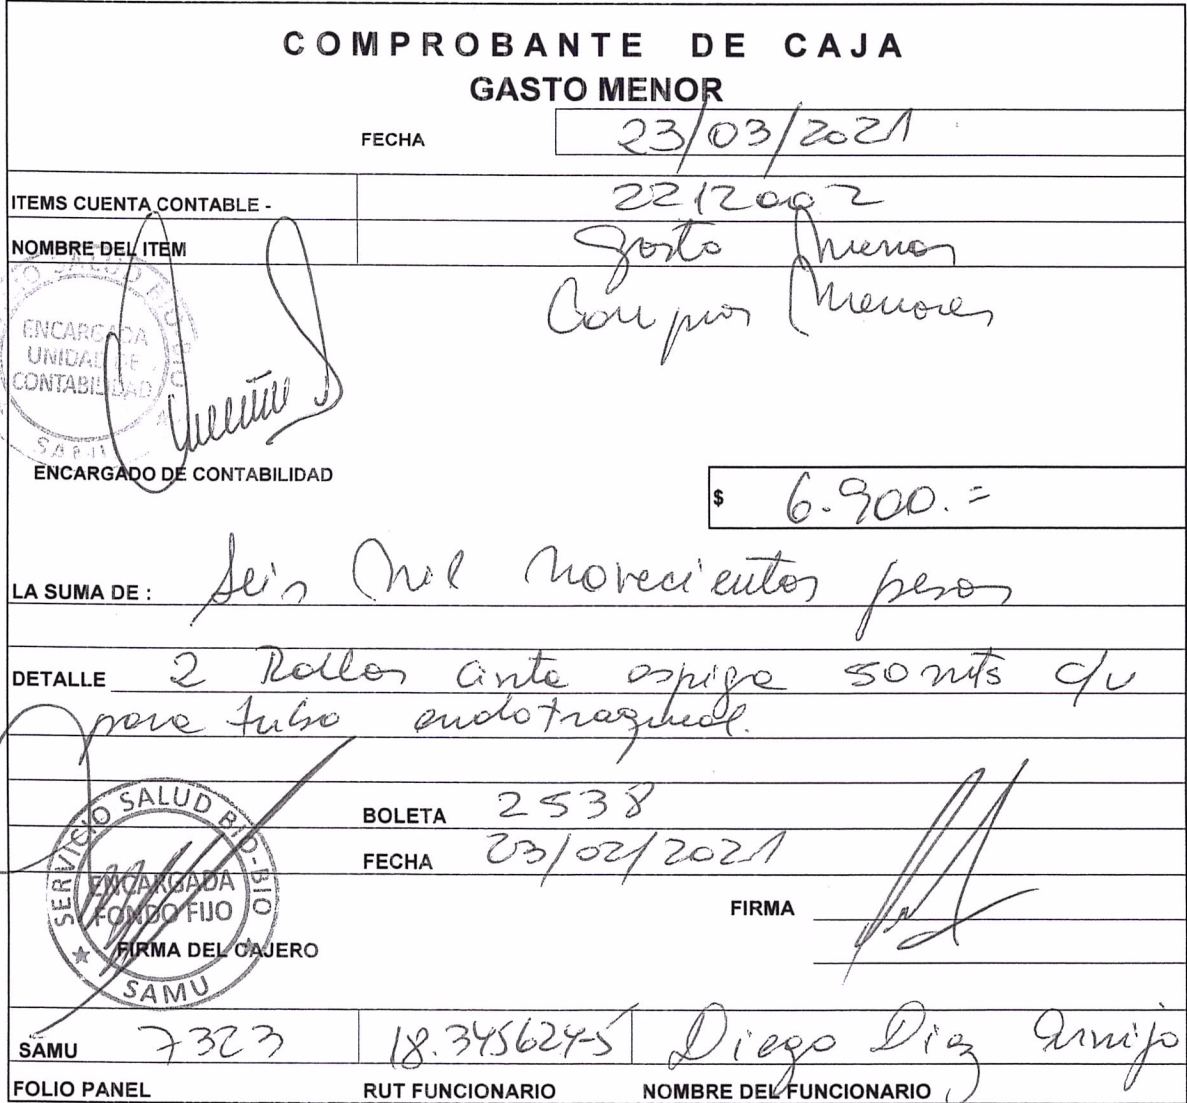 COMPROBANTE DE CAJA
GASTO MENOR
FECHA 23/03/2021
ITEMS CUENTA CONTABLE - 2212002
NOMBRE DEL ITEM Gasto Menor
Compras Menores
SALUD BIO-BIO
ENCARGADA
UNIDAD DE
CONTABILIDAD
SAMU
ENCARGADO DE CONTABILIDAD
$ 6.900.=
LA SUMA DE : Seis Mil Novecientos pesos
DETALLE 2 Rollos cinta espiga 50 mts c/u
para tubo endotraqueal.
BOLETA 2538
FECHA 23/02/2021
SERVICIO SALUD BIO-BIO
ENCARGADA
FONDO FIJO
SAMU
FIRMA
FIRMA DEL CAJERO
SAMU 7323 18.345624-5 Diego Diaz Armijo
FOLIO PANEL RUT FUNCIONARIO NOMBRE DEL FUNCIONARIO